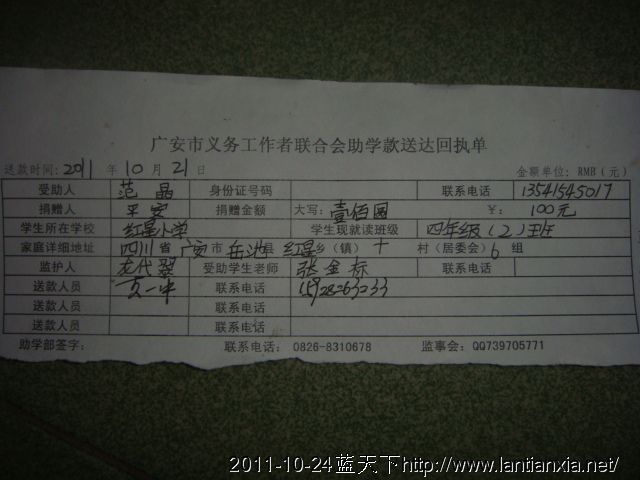 广安市义务工作者联合会助学款送达回执单
送款时间: 2011 年 10 月 21 日 金额单位: RMB (元)
受助人 范晶 身份证号码 联系电话 13541545017
捐赠人 平安 捐赠金额 大写: 壹佰园 ¥: 100元
学生所在学校 红星小学 学生现就读班级 四年级(2)班
家庭详细地址 四川省 广安市 岳池县 红星乡(镇) 十 村(居委会) 6 组
监护人 代翠 受助学生老师 张金标 联系电话
送款人员 联系电话 15928263233
送款人员 联系电话
送款人员 联系电话
助学部签字: 联系电话: 0826-8310678 监事会: QQ739705771
2011-10-24蓝天下http://www.lantianxia.net/